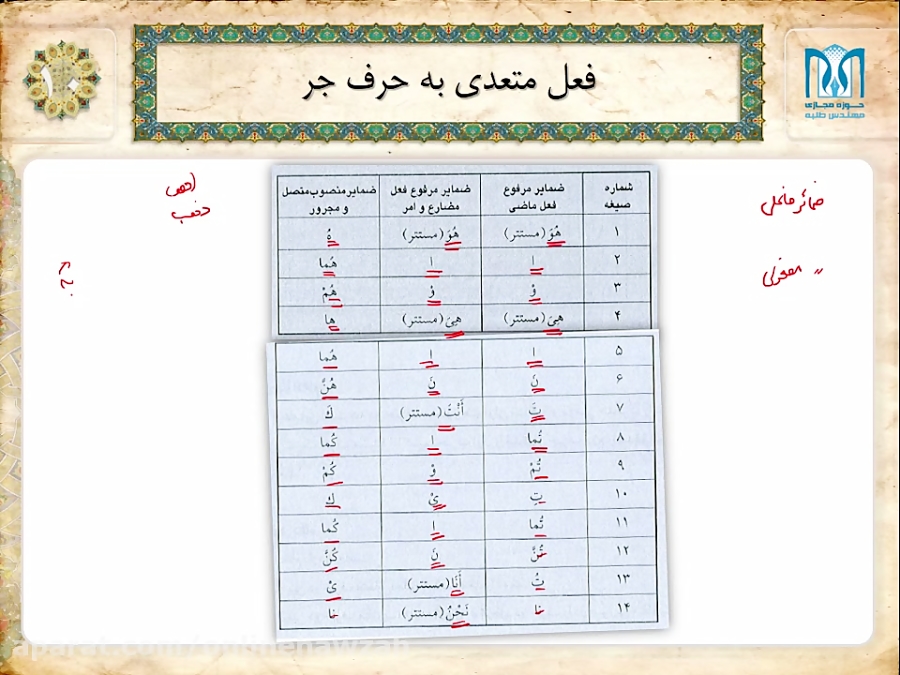 فعل متعدی به حرف جر
۱۰
حوزه مجازی
مهندس طلبه
شماره صیغه | ضمایر مرفوع فعل ماضی | ضمایر مرفوع فعل مضارع و امر | ضمایر منصوب متصل و مجرور
۱ | هُوَ (مستتر) | هُوَ (مستتر) | هُ
۲ | ا | ا | هُما
۳ | وْ | وْ | هُمْ
۴ | هِیَ (مستتر) | هِیَ (مستتر) | ها
۵ | ا | ا | هُما
۶ | نَ | نَ | هُنَّ
۷ | تَ | أَنْتَ (مستتر) | كَ
۸ | تُما | ا | كُما
۹ | تُمْ | وْ | كُمْ
۱۰ | تِ | یْ | كِ
۱۱ | تُما | ا | كُما
۱۲ | تُنَّ | نَ | كُنَّ
۱۳ | تُ | أَنَا (مستتر) | یْ
۱۴ | نا | نَحْنُ (مستتر) | نا
ضمائر فاعلی